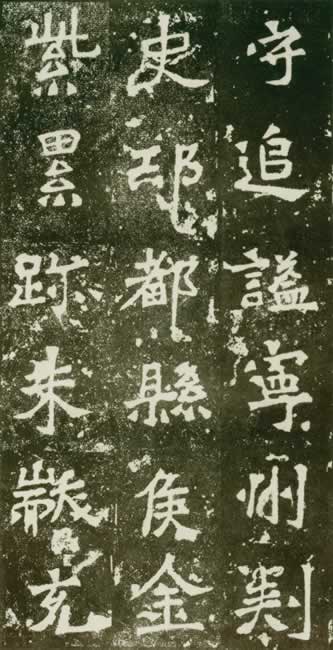 守追謚寧州刺
史邛都縣侯金
紫累跡朱黻充